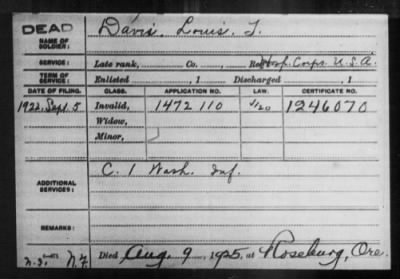 DEAD
NAME OF SOLDIER: Davis, Louis T.
SERVICE: Late rank, Co. , Reg't Hosp. Corps. U.S.A.
TERM OF SERVICE: Enlisted , 1 Discharged , 1
DATE OF FILING. CLASS. APPLICATION NO. LAW. CERTIFICATE NO.
1922, Sept. 5 Invalid, 1472 110 1246070
Widow,
Minor,
ADDITIONAL SERVICES: C. I Wash. Inf.
REMARKS:
Died Aug. 9, 1925, at Roseburg, Ore.